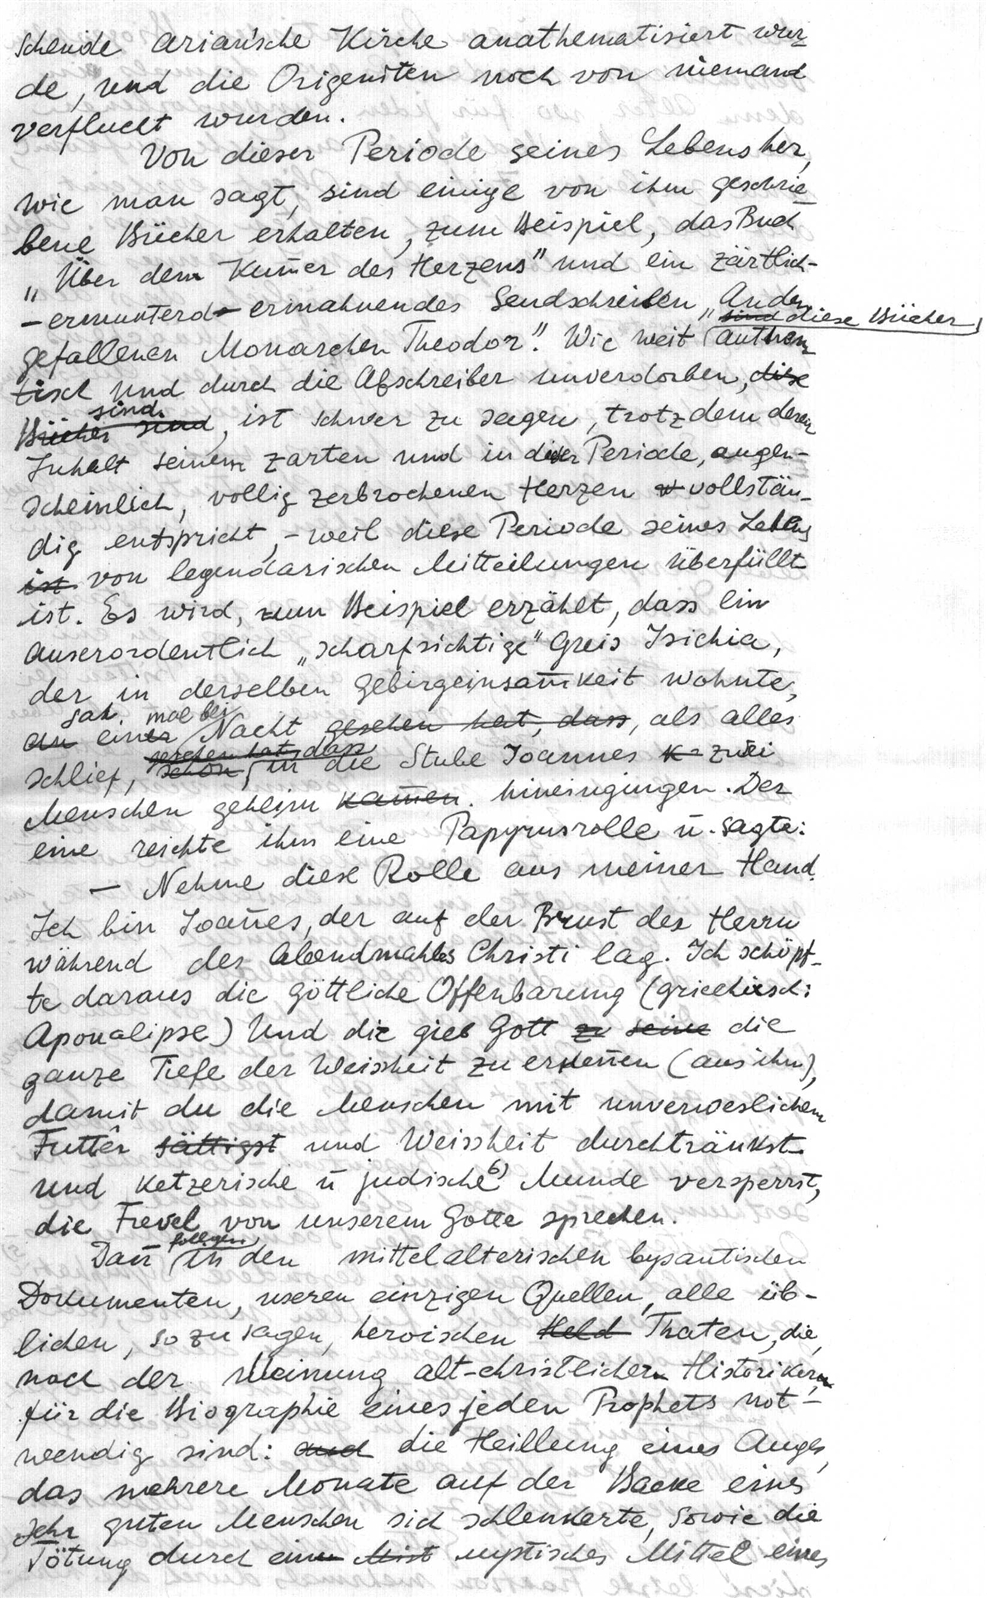 schende ariarische Kirche anathematisiert wur-
de, und die Origeniten noch von niemand
verflucht wurden.
Von dieser Periode seines Lebens her,
wie man sagt, sind einige von ihm geschrie-
bene Bücher erhalten, zum Beispiel, das Buch
„Über dem Kum̄er des Herzens" und ein zärtlich-
-ermunterd-ermahnendes Sendschreiben „An den
sind diese Bücher
gefallenen Monarchen Theodor". Wie weit authen-
tisch und durch die Abschreiber unverdorben, diese
sind
Bücher sind, ist schwer zu sagen, trotzdem deren
Inhalt seinem zarten und in dieser Periode, augen-
scheinlich, vollig zerbrochenen Herzen vollstän-
dig entspricht, - weil diese Periode seines Lebens
ist von legendarischen Mitteilungen überfüllt
ist. Es wird, zum Beispiel erzählt, dass ein
auserordentlich „scharfsichtige" Greis Isichia,
der in derselben Gebirgeinsam̄keit wohnte,
sah mal bei
an einer Nacht gesehen hat, dass, als alles
gesehen hat, dass
schlief, schon, in die Stube Joannes k zwei
Menschen geheim kam̄en. hineingingen. Der
eine reichte ihm eine Papyrusrolle ū. sagte:
— Nehme diese Rolle aus meiner Hand.
Ich bin Joan̄es, der auf der Brust des Herrn
während des Abendmahles Christi lag. Ich schöpf-
te daraus die göttliche Offenbarung (griechisch:
Apokalipse) Und die gieb Gott zu seine die
ganze Tiefe der Weisheit zu erken̄en (aus ihm),
damit du die Menschen mit unverweslichem
Futter sättigst und Weissheit durchtränkst
und ketzerische ū judische 6) Munde versperrst,
die Frevel von unserem Gotte sprechen.
folgen
Dan̄ in den mittelalterischen bysantischen
Dokumenten, unseren einzigen Quellen, alle üb-
lichen, so zu sagen, heroischen Held Thaten, die,
nach der Meinung alt-christlichern Historikern,
für die Biographie eines jeden Prophets not-
wendig sind: und die Heillung eines Auges,
das mehrere Monate auf der Backe eines
sehr guten Menschen sich schlenkerte, sowie die
Tötung durch einen Mist mystisches Mittel eines